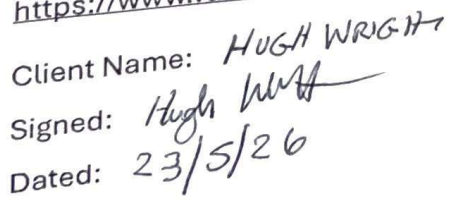 https://www.
Client Name: HUGH WRIGHT
Signed: Hugh
Dated: 23/5/26